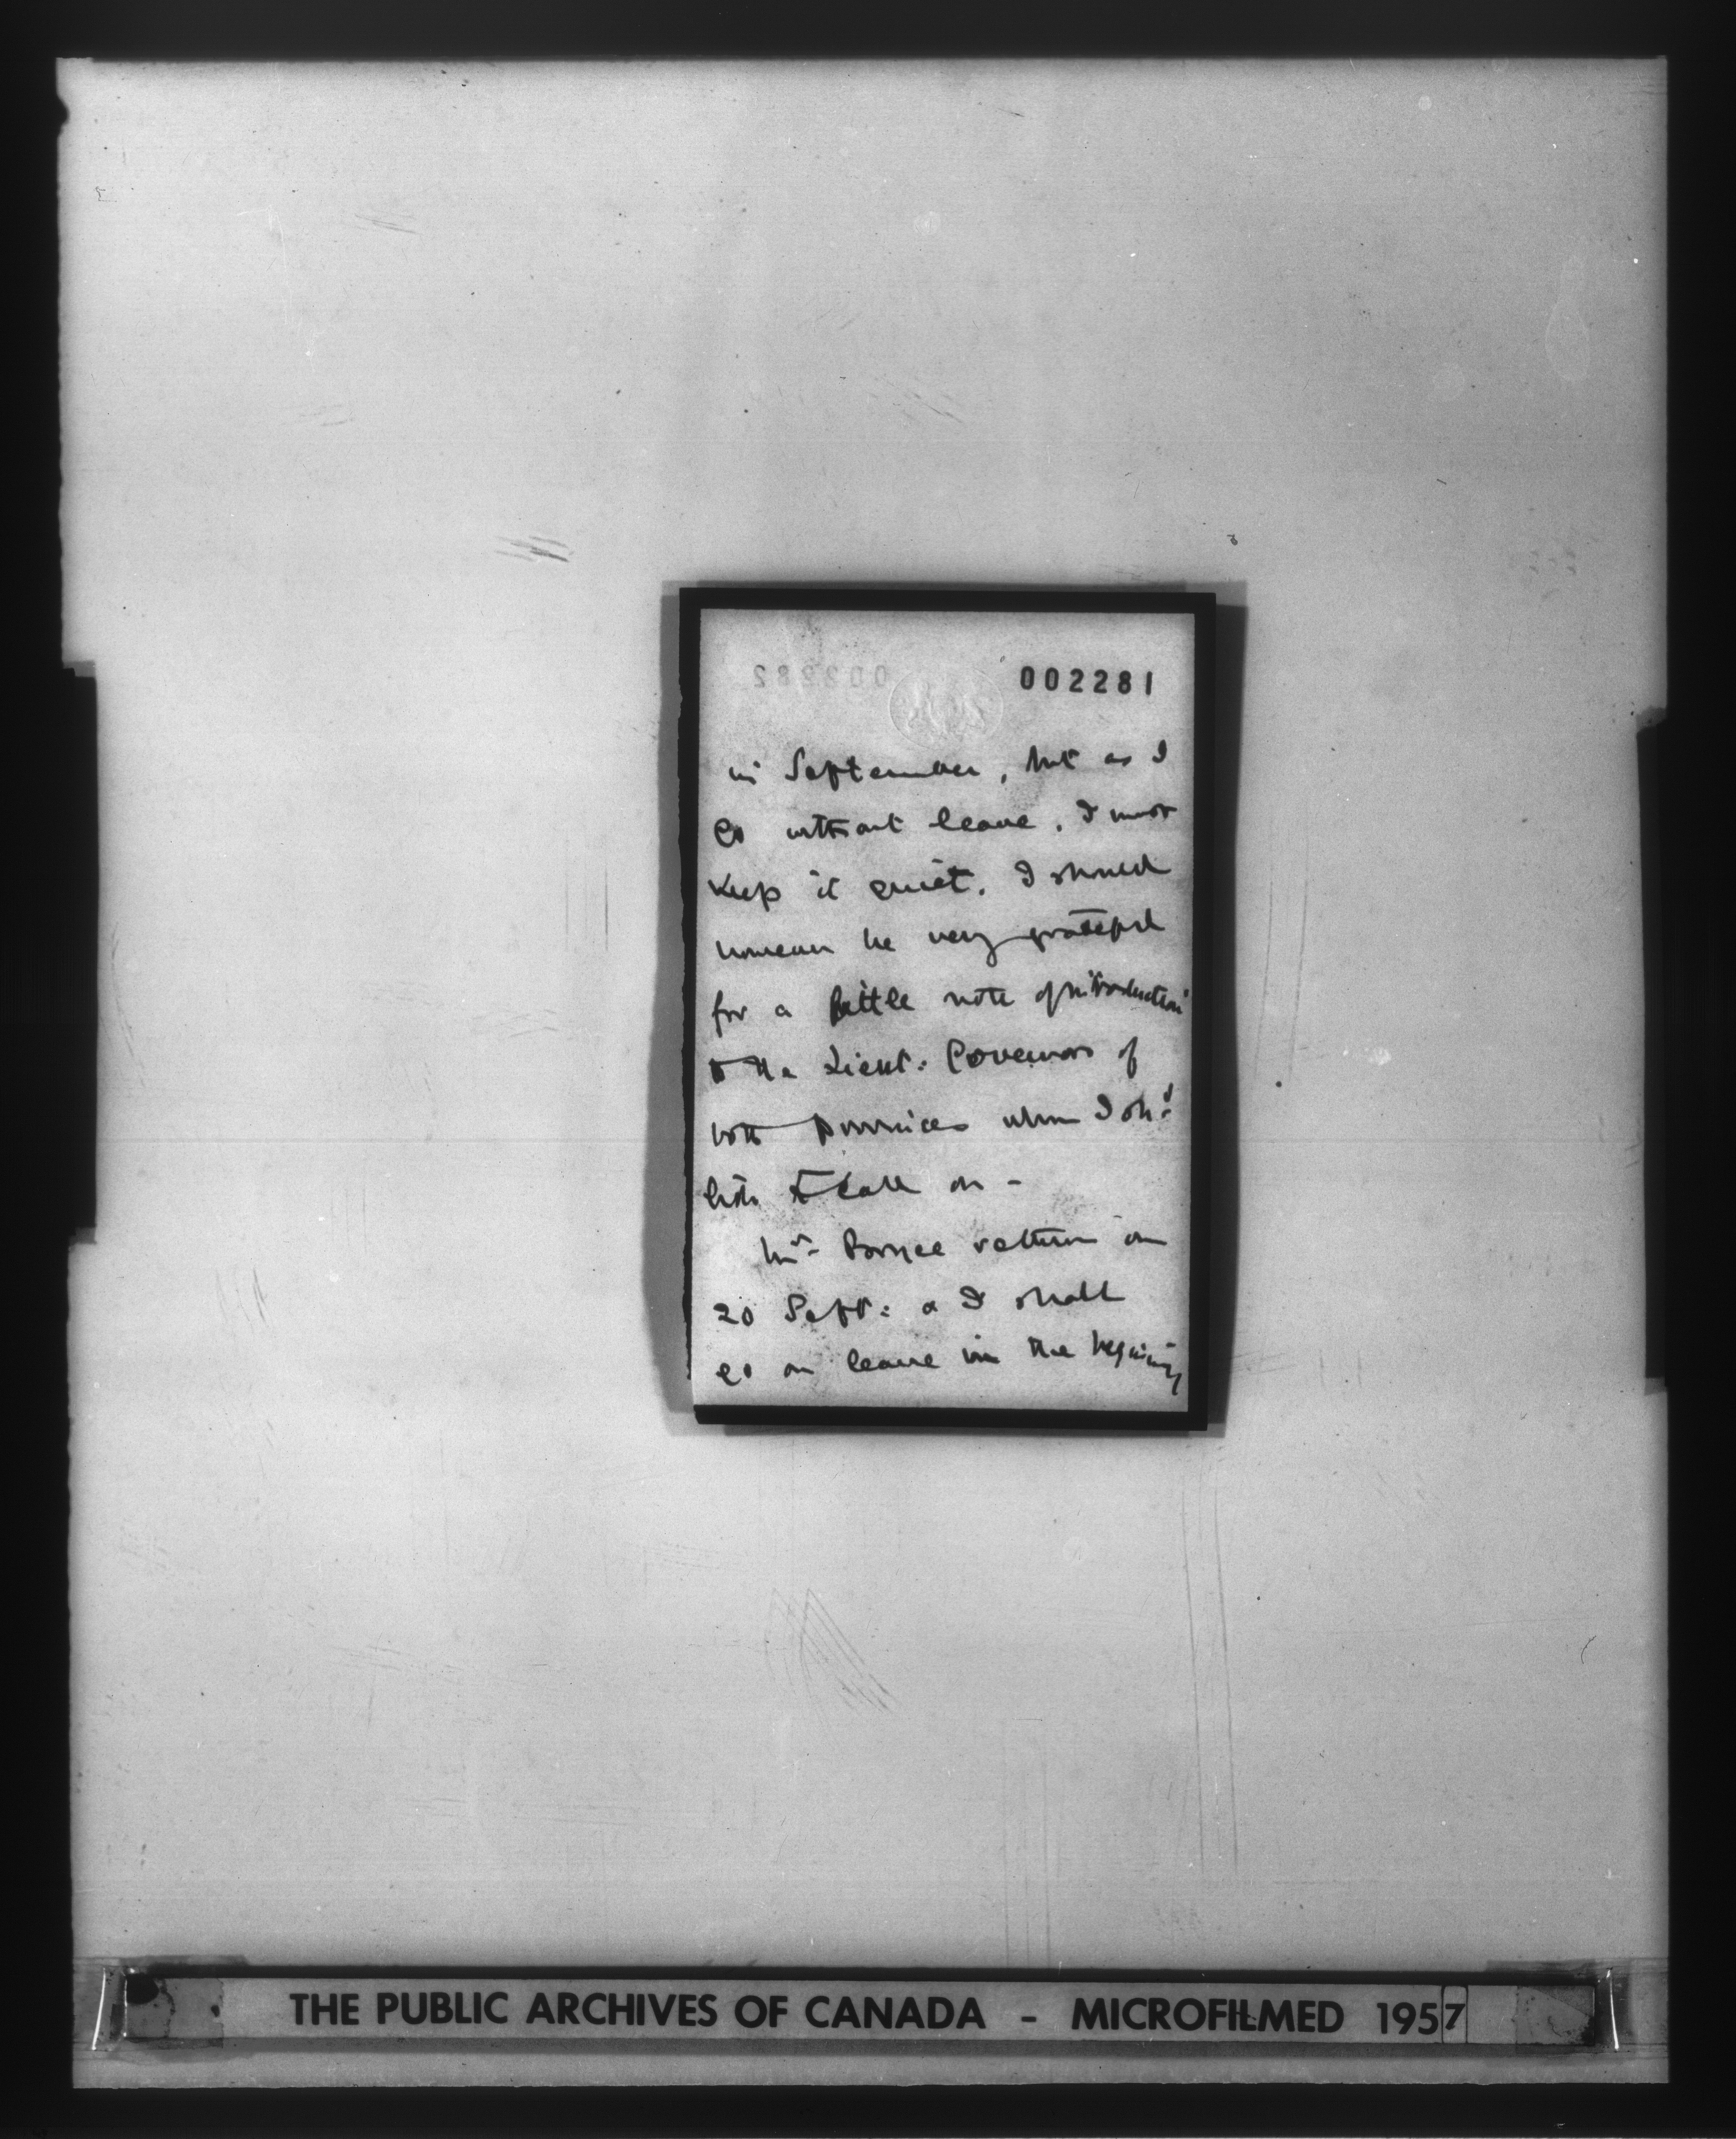 002281
in September, but as I
go without leave, I must
keep it quiet. I should
however be very grateful
for a little note of introduction
to the Lieut: Governors of
both provinces whom I shd
like to call on -
Mr returns on
20 Sept: & I shall
go on leave in the beginning
THE PUBLIC ARCHIVES OF CANADA - MICROFILMED 1957